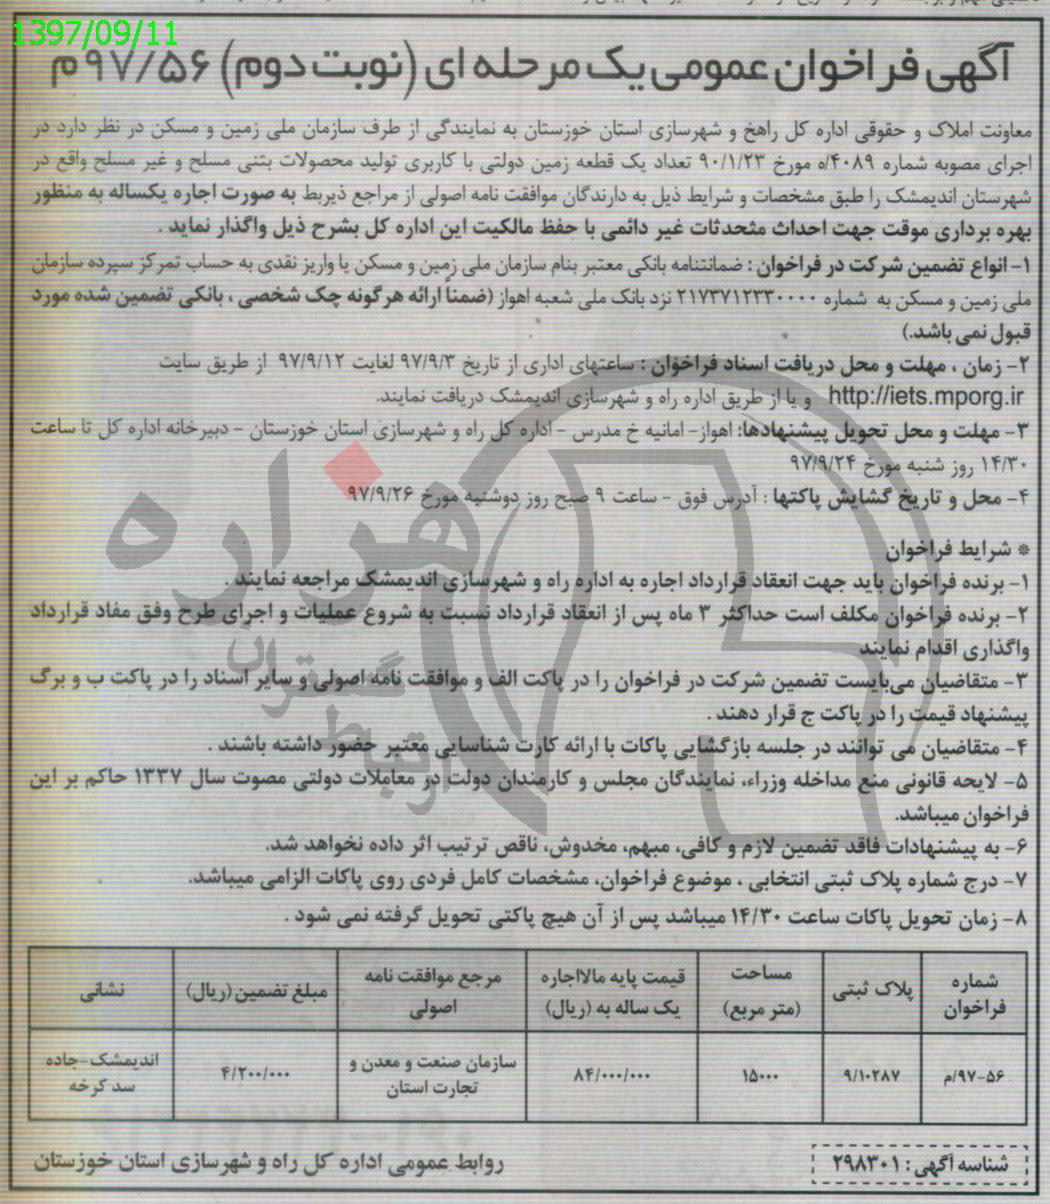 1397/09/11
آگهی فراخوان عمومی یک مرحله ای (نوبت دوم) ۹۷/۵۶م
معاونت املاک و حقوقی اداره کل راهخ و شهرسازی استان خوزستان به نمایندگی از طرف سازمان ملی زمین و مسکن در نظر دارد در
اجرای مصوبه شماره ۴۰۸۹/ه مورخ ۹۰/۱/۲۳ تعداد یک قطعه زمین دولتی با کاربری تولید محصولات بتنی مسلح و غیر مسلح واقع در
شهرستان اندیمشک را طبق مشخصات و شرایط ذیل به دارندگان موافقت نامه اصولی از مراجع ذیربط به صورت اجاره یکساله به منظور
بهره برداری موقت جهت احداث مثحدثات غیر دائمی با حفظ مالکیت این اداره کل بشرح ذیل واگذار نماید .
۱- انواع تضمین شرکت در فراخوان : ضمانتنامه بانکی معتبر بنام سازمان ملی زمین و مسکن یا واریز نقدی به حساب تمرکز سپرده سازمان
ملی زمین و مسکن به شماره ۲۱۷۳۷۱۲۳۳۰۰۰۰ نزد بانک ملی شعبه اهواز (ضمناً ارائه هرگونه چک شخصی ، بانکی تضمین شده مورد
قبول نمی باشد.)
۲- زمان ، مهلت و محل دریافت اسناد فراخوان : ساعتهای اداری از تاریخ ۹۷/۹/۳ لغایت ۹۷/۹/۱۲ از طریق سایت
http://iets.mporg.ir و یا از طریق اداره راه و شهرسازی اندیمشک دریافت نمایند.
۳- مهلت و محل تحویل پیشنهادها: اهواز- امانیه خ مدرس - اداره کل راه و شهرسازی استان خوزستان - دبیرخانه اداره کل تا ساعت
۱۴/۳۰ روز شنبه مورخ ۹۷/۹/۲۴
۴- محل و تاریخ گشایش پاکتها : آدرس فوق - ساعت ۹ صبح روز دوشنبه مورخ ۹۷/۹/۲۶
* شرایط فراخوان
۱- برنده فراخوان باید جهت انعقاد قرارداد اجاره به اداره راه و شهرسازی اندیمشک مراجعه نمایند .
۲- برنده فراخوان مکلف است حداکثر ۳ ماه پس از انعقاد قرارداد نسبت به شروع عملیات و اجرای طرح وفق مفاد قرارداد
واگذاری اقدام نمایند
۳- متقاضیان می‌بایست تضمین شرکت در فراخوان را در پاکت الف و موافقت نامه اصولی و سایر اسناد را در پاکت ب و برگ
پیشنهاد قیمت را در پاکت ج قرار دهند .
۴- متقاضیان می توانند در جلسه بازگشایی پاکات با ارائه کارت شناسایی معتبر حضور داشته باشند .
۵- لایحه قانونی منع مداخله وزراء، نمایندگان مجلس و کارمندان دولت در معاملات دولتی مصوت سال ۱۳۳۷ حاکم بر این
فراخوان میباشد.
۶- به پیشنهادات فاقد تضمین لازم و کافی، مبهم، مخدوش، ناقص ترتیب اثر داده نخواهد شد.
۷- درج شماره پلاک ثبتی انتخابی ، موضوع فراخوان، مشخصات کامل فردی روی پاکات الزامی میباشد.
۸- زمان تحویل پاکات ساعت ۱۴/۳۰ میباشد پس از آن هیچ پاکتی تحویل گرفته نمی شود .
شماره فراخوان پلاک ثبتی مساحت (متر مربع) قیمت پایه مالااجاره یک ساله به (ریال) مرجع موافقت نامه اصولی مبلغ تضمین (ریال) نشانی
۹۷-۵۶/م ۹/۱۰۲۸۷ ۱۵۰۰۰ ۸۴/۰۰۰/۰۰۰ سازمان صنعت و معدن و تجارت استان ۴/۲۰۰/۰۰۰ اندیمشک-جاده سد کرخه
شناسه آگهی : ۲۹۸۳۰۱ روابط عمومی اداره کل راه و شهرسازی استان خوزستان
هزاره
گستران